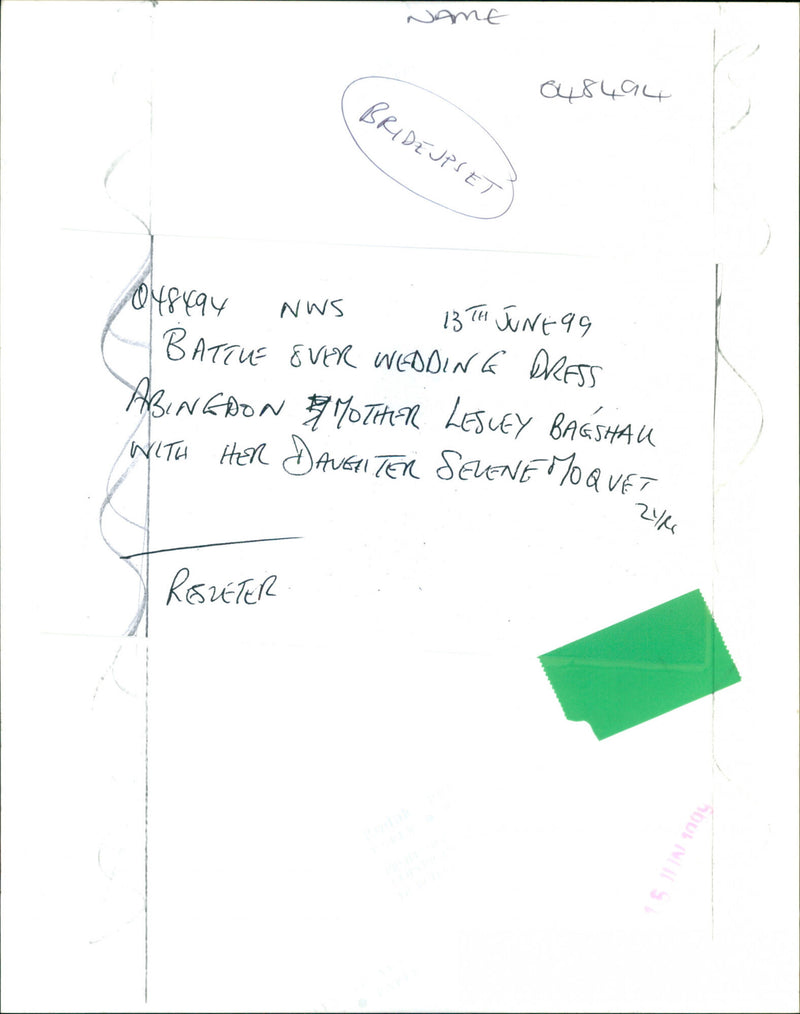 NAME
048494
BRIDEUPSET
048494 NWS 13TH JUNE 99
BATTLE OVER WEDDING DRESS
ABINGDON MOTHER LESLEY BAGSHAW
WITH HER DAUGHTER SELENE MOQUET
15 JUN 1999